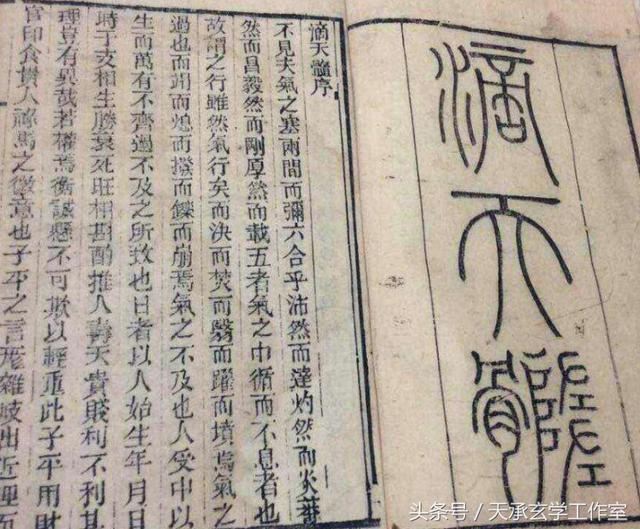 滴天髓
滴天髓序
不見夫氣之塞兩間而彌六合乎沛然而達灼然而炎
然而昌毅然而剛厚然而載五者氣之中循而不息者也
故謂之行雖然氣行矣而決而焚而翳而躍而墳焉氣之
過也而涸而熄而撥而鑠而崩焉氣之不及也人受中以
生而萬有不齊過不及之所致也日者以人始生年月日
時于支相生勝衰死旺相斟酌推人壽夭貴賤利不利其
理豈有異哉若權焉衡誠懸不可欺以輕重此子平用財
官印食貴人祿馬之也子平之言雜歧出近理而
头条号/天承玄学工作室